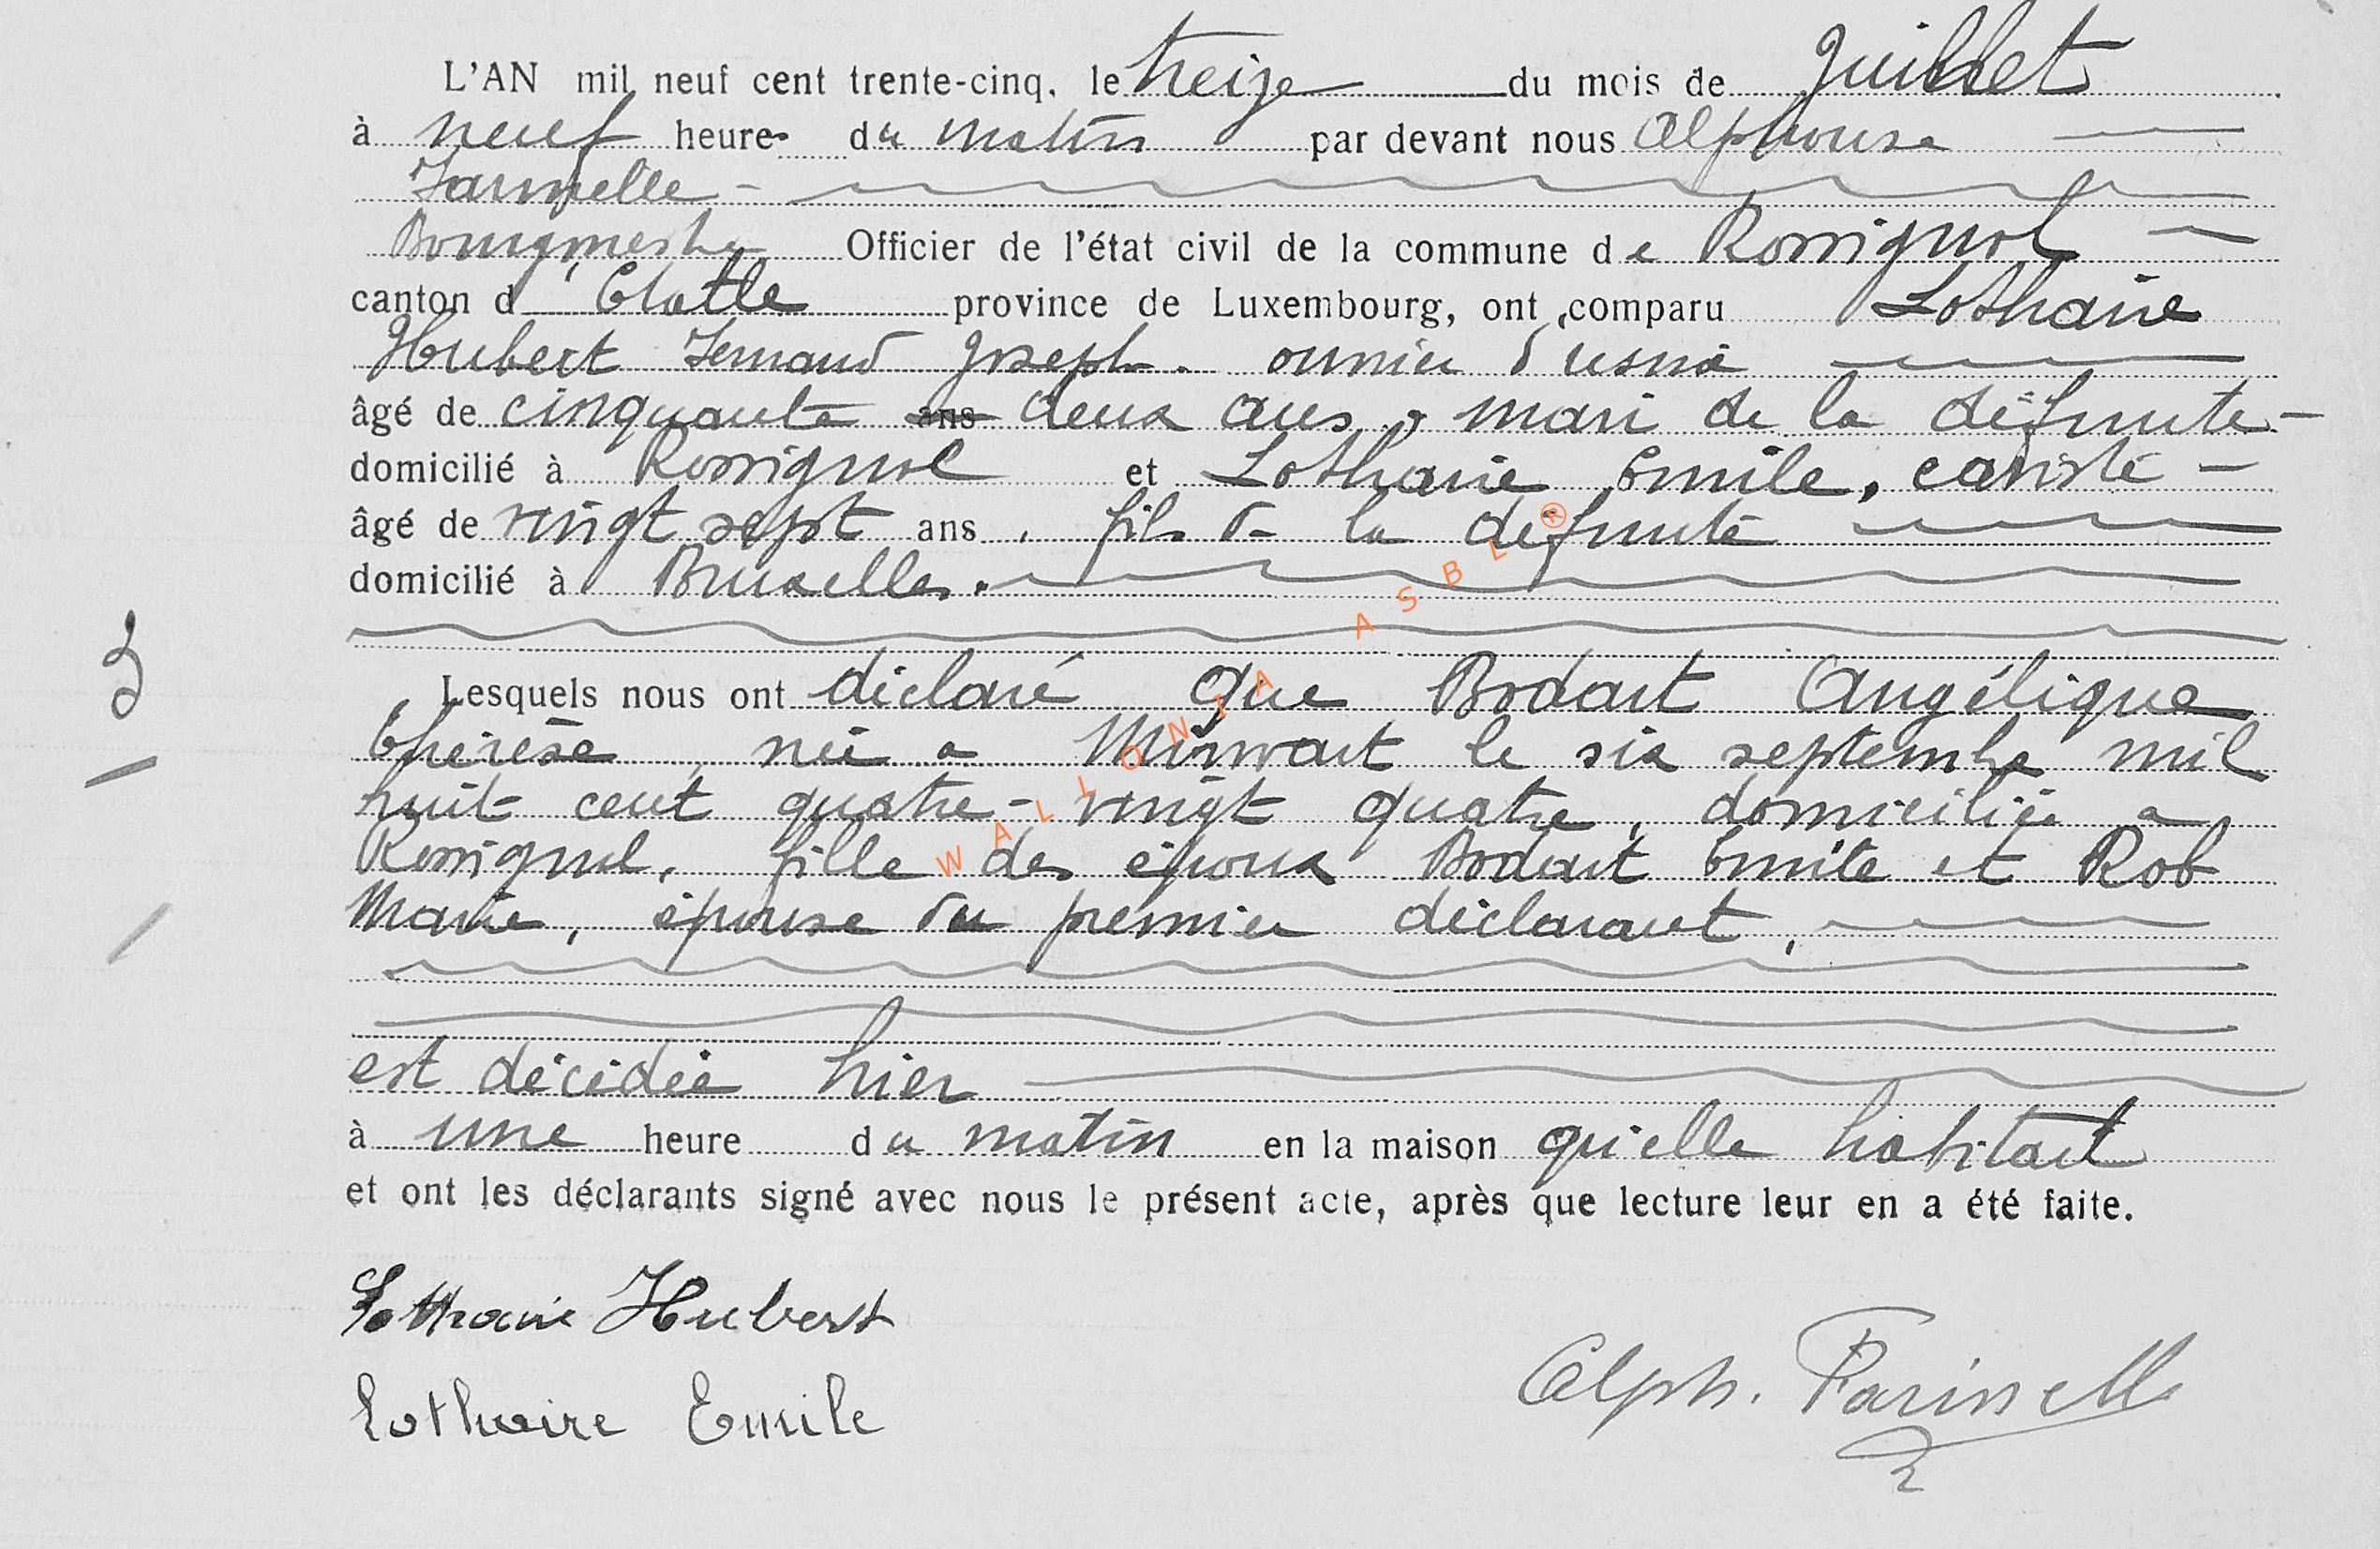 L'AN mil neuf cent trente-cinq, le treize du mois de Juillet
à neuf heures du matin par devant nous Alphonse
Farinelle
Bourgmestre Officier de l'état civil de la commune de Rossignol
canton d'Etalle province de Luxembourg, ont comparu Lothaire
Hubert Fernand Joseph. ouvrier d'usine
âgé de cinquante ans deux ans, mari de la défunte
domicilié à Rossignol et Lothaire Emile, caviste
âgé de vingt sept ans, fils de la défunte
domicilié à Bruxelles.
3
Lesquels nous ont déclaré que Bodart Angélique
Thérèse, née à Mirwart le six septembre mil
huit cent quatre-vingt quatre, domiciliée à
Rossignol, fille des époux Bodart Emile et Rob
Marie, épouse du premier déclarant,
est décédée hier
à une heure du matin en la maison qu'elle habitait
et ont les déclarants signé avec nous le présent acte, après que lecture leur en a été faite.
Lothaire Hubert
Alph. Farinelle
Lothaire Emile
WALLONIA ASBL ®